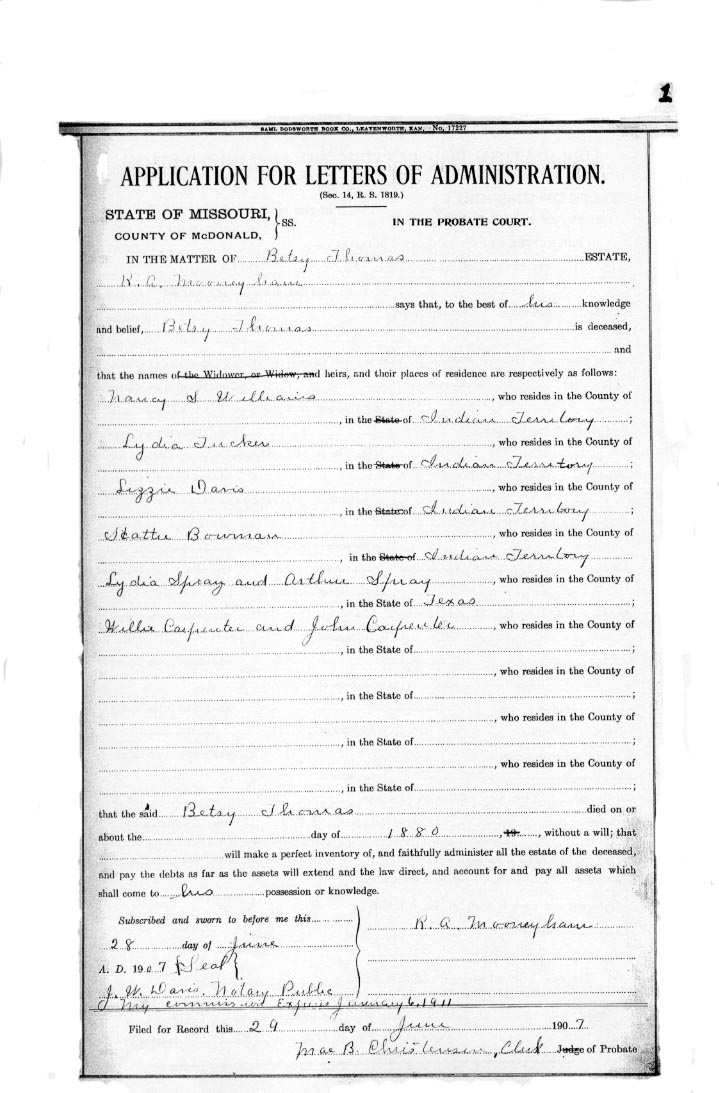 1
SAML DODSWORTH BOOK CO., LEAVENWORTH, KAN, No, 17227
APPLICATION FOR LETTERS OF ADMINISTRATION.
(Sec. 14, R. S. 1819.)
STATE OF MISSOURI,
COUNTY OF McDONALD, } SS.
IN THE PROBATE COURT.
IN THE MATTER OF Betsy Thomas ESTATE,
K. A. Mooneyham
says that, to the best of his knowledge
and belief, Betsy Thomas is deceased,
and
that the names of the Widower, or Widow, and heirs, and their places of residence are respectively as follows:
Nancy S Williams, who resides in the County of
, in the State of Indian Territory;
Lydia Tucker, who resides in the County of
, in the State of Indian Territory;
Lizzie Davis, who resides in the County of
, in the State of Indian Territory;
Hattie Bowman, who resides in the County of
, in the State of Indian Territory
Lydia Spray and Arthur Spray, who resides in the County of
, in the State of Texas;
Willie Carpenter and John Carpenter, who resides in the County of
, in the State of;
, who resides in the County of
, in the State of;
, who resides in the County of
, in the State of;
, who resides in the County of
, in the State of;
that the said Betsy Thomas died on or
about the day of 1880, 19, without a will; that
will make a perfect inventory of, and faithfully administer all the estate of the deceased,
and pay the debts as far as the assets will extend and the law direct, and account for and pay all assets which
shall come to his possession or knowledge.
Subscribed and sworn to before me this
28 day of June
A. D. 1907 {Seal}
J. W. Davis, Notary Public
My commission Expires January 6, 1911
K. A. Mooneyham
Filed for Record this 29 day of June 1907
Mae B. Christensen, Clerk Judge of Probate